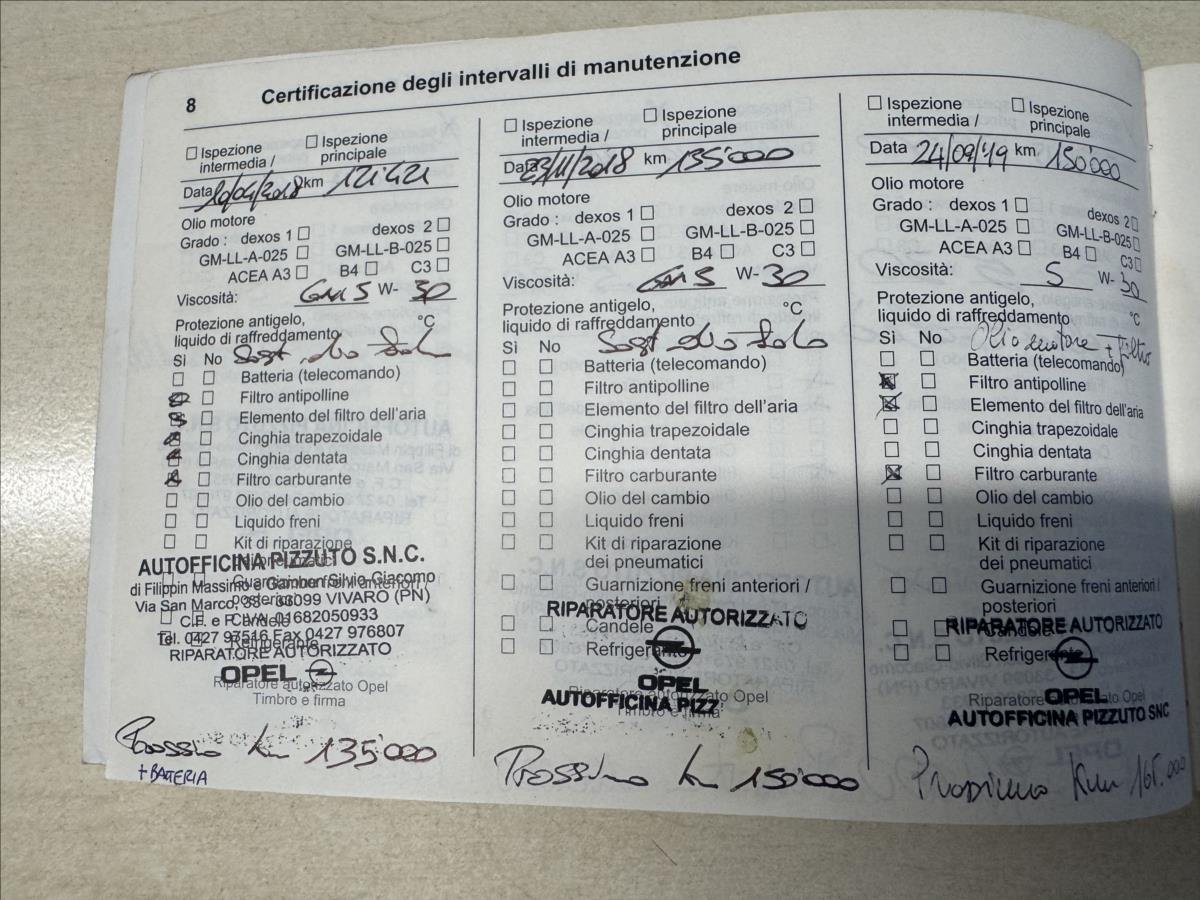 8 Certificazione degli intervalli di manutenzione
Ispezione intermedia /
Ispezione principale
Data 10/04/2018 km 121'421
Olio motore
Grado : dexos 1 dexos 2
GM-LL-A-025 GM-LL-B-025
ACEA A3 B4 C3
Viscosità: GM 5 W- 30
Protezione antigelo,
liquido di raffreddamento °C
Sì No Sost. olio
Batteria (telecomando)
Filtro antipolline
Elemento del filtro dell'aria
Cinghia trapezoidale
Cinghia dentata
Filtro carburante
Olio del cambio
Liquido freni
Kit di riparazione
dei pneumatici
Guarnizione freni anteriori /
posteriori
Candele
Refrigerante
AUTOFFICINA PIZZUTO S.N.C.
di Filippin Massimo & Gambon Silvio Giacomo
Via San Marco, 33 - 33099 VIVARO (PN)
C.F. e P. IVA 01682050933
Tel. 0427 97516 Fax 0427 976807
RIPARATORE AUTORIZZATO
OPEL
Riparatore autorizzato Opel
Timbro e firma
Prossimo Km 135'000
+ BATTERIA
Ispezione intermedia /
Ispezione principale
Data 23/11/2018 km 135'000
Olio motore
Grado : dexos 1 dexos 2
GM-LL-A-025 GM-LL-B-025
ACEA A3 B4 C3
Viscosità: GM 5 W- 30
Protezione antigelo,
liquido di raffreddamento °C
Sì No Sost. olio
Batteria (telecomando)
Filtro antipolline
Elemento del filtro dell'aria
Cinghia trapezoidale
Cinghia dentata
Filtro carburante
Olio del cambio
Liquido freni
Kit di riparazione
dei pneumatici
Guarnizione freni anteriori /
posteriori
Candele
Refrigerante
RIPARATORE AUTORIZZATO
OPEL
AUTOFFICINA PIZZ
Riparatore autorizzato Opel
Timbro e firma
Prossimo Km 150'000
Ispezione intermedia /
Ispezione principale
Data 24/09/'19 km 150'000
Olio motore
Grado : dexos 1 dexos 2
GM-LL-A-025 GM-LL-B-025
ACEA A3 B4 C3
Viscosità: 5 W- 30
Protezione antigelo,
liquido di raffreddamento °C
Sì No Olio motore + Filtro
Batteria (telecomando)
Filtro antipolline
Elemento del filtro dell'aria
Cinghia trapezoidale
Cinghia dentata
Filtro carburante
Olio del cambio
Liquido freni
Kit di riparazione
dei pneumatici
Guarnizione freni anteriori /
posteriori
Candele
Refrigerante
RIPARATORE AUTORIZZATO
OPEL
Riparatore autorizzato Opel
AUTOFFICINA PIZZUTO SNC
Prossimo Km 165.000